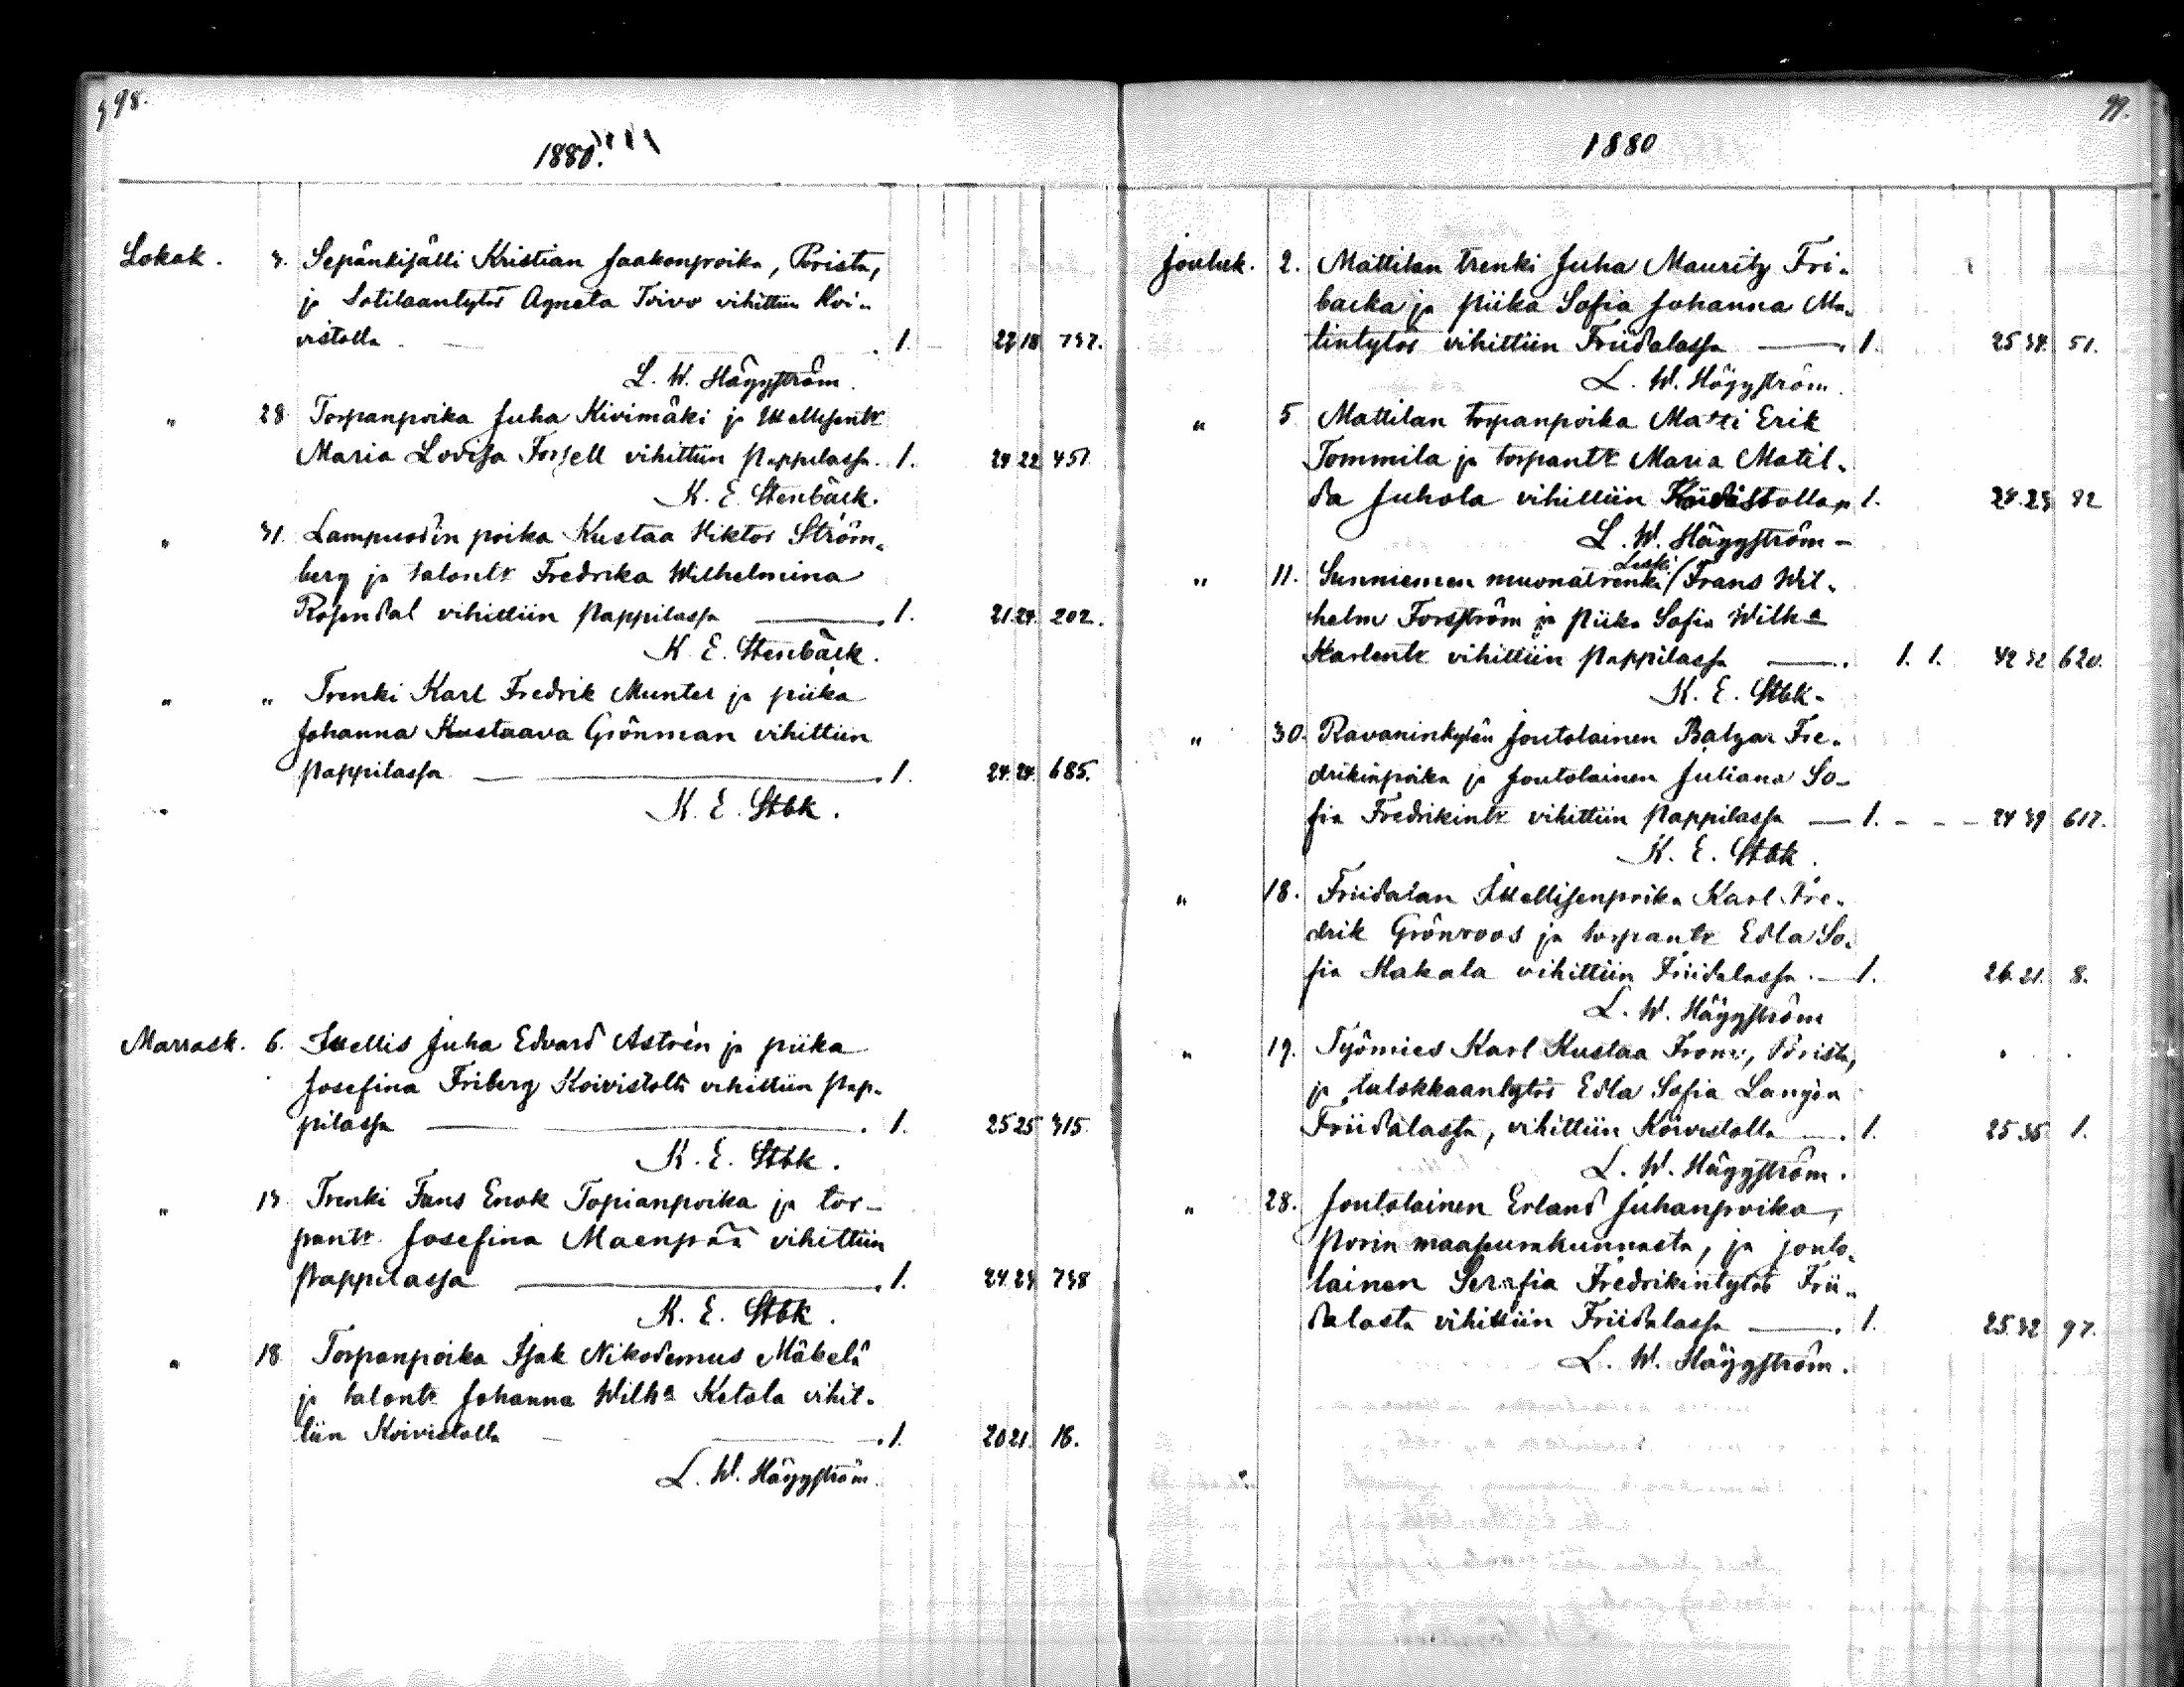 98.
1880.
Lokak. 3. Sepänkisälli Kristian Jaakonpoika, Porista,
ja Sotilaantytös Agneta Toivo vihittiin Koi-
vistolla 1. 22 18 737.
L. W. Häggström.
" 28 Torpanpoika Juha Kivimäki ja Itsellisentr
Maria Lovisa Forsell vihittiin Pappilassa. 1. 24 22 451
K. E. Stenbäck.
" 31. Lampuodin poika Kustaa Viktor Ström-
berg ja talontr Fredrika Wilhelmina
Rosendal vihittiin Pappilassa 1. 21.24. 202.
K. E. Stenbäck.
" " Trenki Karl Fredrik Munter ja piika
Johanna Kustaava Grönman vihittiin
Pappilassa 1. 24.24. 685.
K. E. Stbk.
Marrask. 6. Itsellis Juha Edvard Astrén ja piika
Josefina Friberg Koivistolta vihittiin Pap-
pilassa 1. 25 25 315
K. E. Stbk.
" 13 Trenki Fans Enok Topianpoika ja tor-
pantr. Josefina Maenpää vihittiin
Pappilassa 1. 24.23 738
K. E. Stbk.
" 18 Torpanpoika Isak Nikodemus Mäkelä
ja talontr Johanna Wilha Ketola vihit-
tiin Koivistolla 1. 20 21. 18.
L. W. Häggström.
99.
1880
Jouluk. 2. Mattilan trenki Juha Mauritz Fri-
backa ja piika Sofia Johanna Ma-
tintytös vihittiin Friidalassa 1. 25 34. 51.
L. W. Häggström.
" 5 Mattilan torpanpoika Matti Erik
Tommila ja torpantr Maria Matil-
da Juhola vihittiin Koivistolla 1. 24.23 82
L. W. Häggström
" 11. Sunniemen muonatrenki/ Leski Frans Wil-
helm Forsström ja piika Sofia Wilha
Karlentr vihittiin Pappilassa 1. 1. 42 32 620.
K. E. Stbk.
" 30. Ravaninkylän Joutolainen Balzar Fre-
drikinpoika ja Joutolainen Juliana So-
fia Fredrikintr vihittiin Pappilassa 1. 24 39 617.
K. E. Stbk.
" 18. Friidalan Itsellisenpoika Karl Fre-
drik Grönroos ja torpantr Edla So-
fia Hakala vihittiin Friidalassa 1. 26.21. 8.
L. W. Häggström
" 19. Työmies Karl Kustaa From, Porista,
ja talokkaantytös Edla Sofia Langén
Friidalassa, vihittiin Koivistolla 1. 25 35 1.
L. W. Häggström.
" 28. Joutolainen Erland Juhanpoika,
Porin maaseurakunnasta, ja jouto-
lainen Serafia Fredrikintytös Frii-
dalasta vihittiin Friidalassa 1. 25.32 97.
L. W. Häggström.